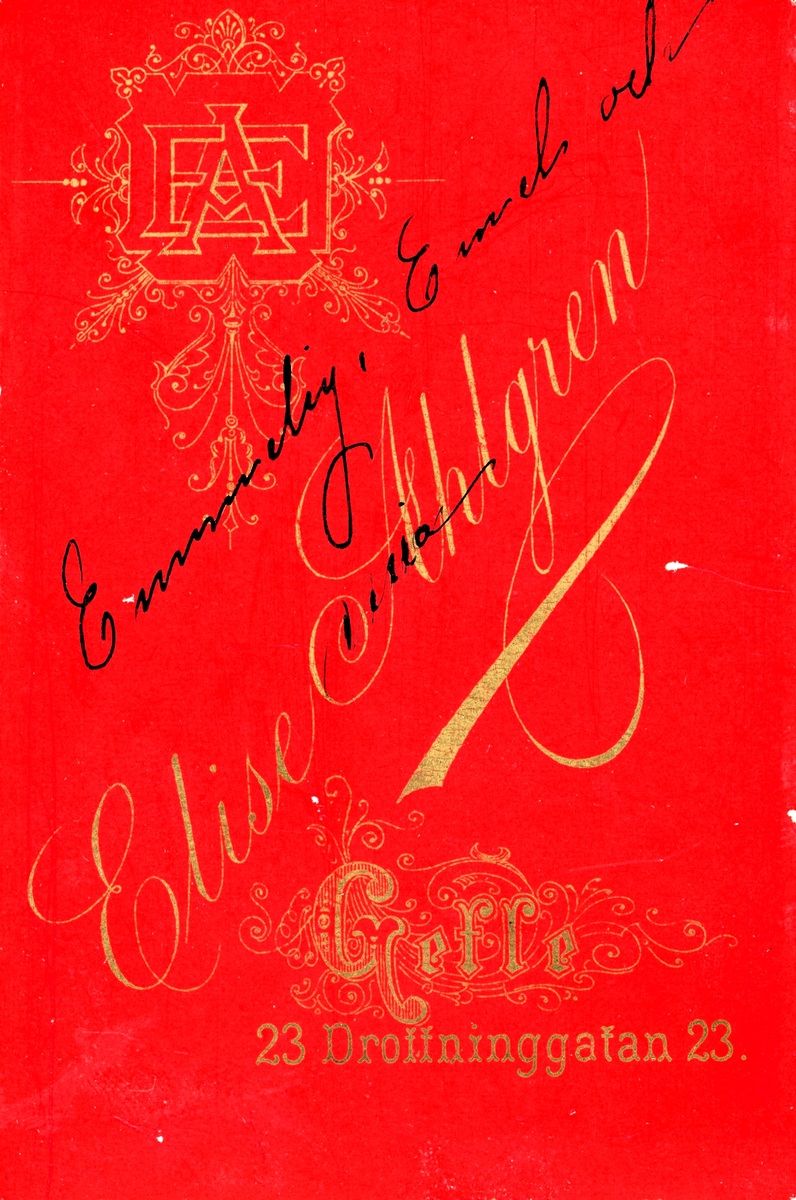 EAE
Emmeliy, Emels och
Elise Ahlgren
Gefle
23 Drottninggatan 23.